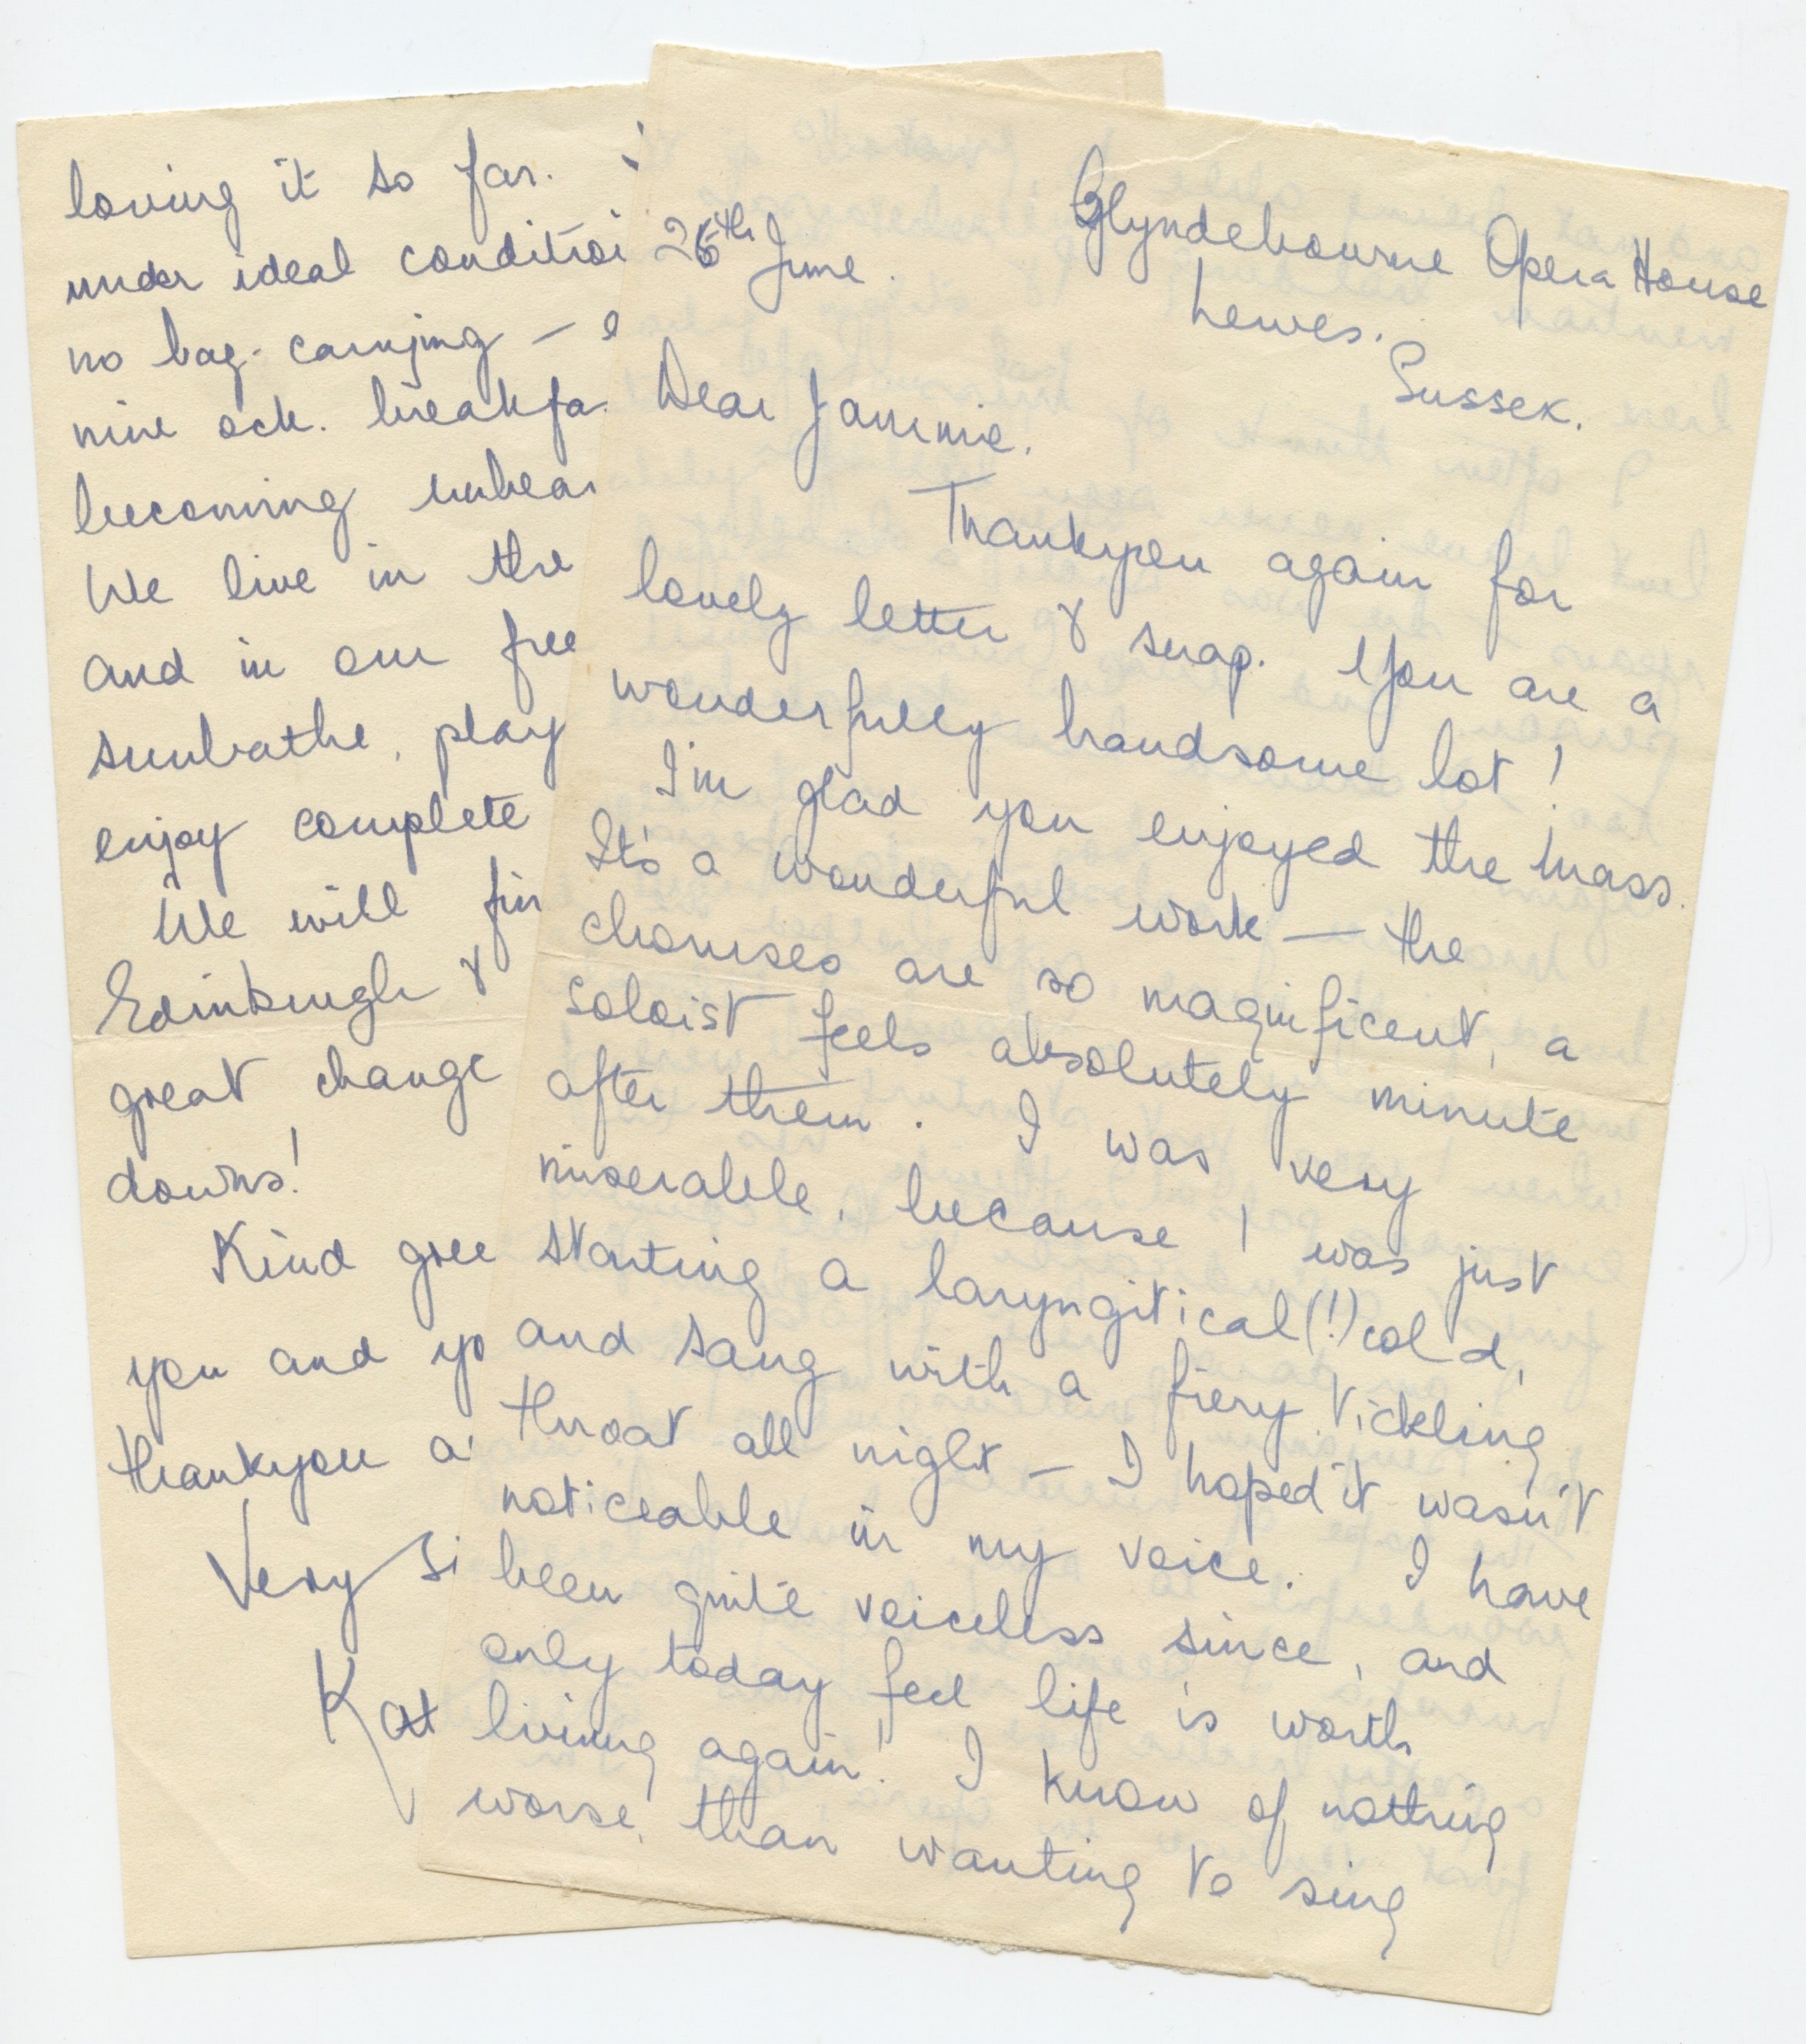 Glyndebourne Opera House
Lewes.
Sussex.
26th June.
Dear Jammie.
Thankyou again for
lovely letter & snap. You are a
wonderfully handsome lot!
I'm glad you enjoyed the Mass.
It's a wonderful work — the
choruses are so magnificent, a
soloist feels absolutely minute
after them. I was very
miserable, because I was just
starting a laryngitical(!) cold,
and sang with a fiery tickling
throat all night — I hoped it wasn't
noticeable in my voice. I have
been quite voiceless since, and
only today feel life is worth
living again! I know of nothing
worse, than wanting to sing
loving it so far.
under ideal conditio
no bag-carrying —
nine ock. breakfa
becoming unbear
We live in the
and in our free
sunbathe, play
enjoy complete
We will fin
Edinburgh &
great change
downs!
Kind gree
you and yo
thankyou a
Very Si
Kat